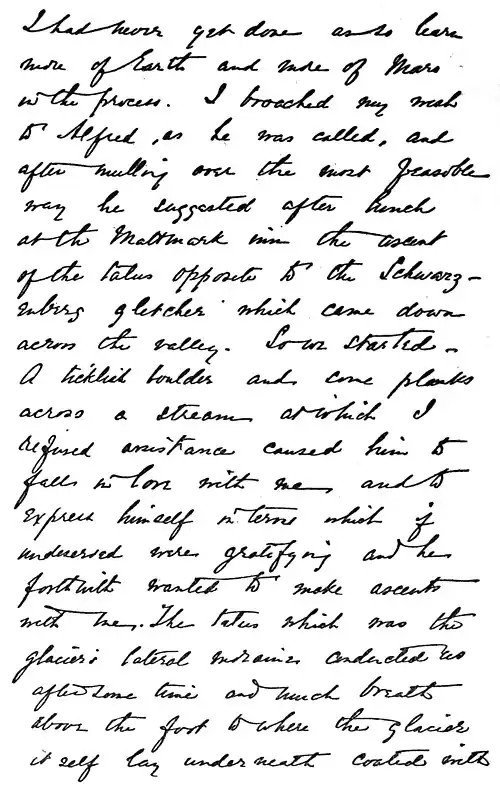 I had never yet done as to learn
more of Earth and more of Mars
in the process. I broached my wish
to Alfred, as he was called, and
after mulling over the most feasible
way he suggested after lunch
at the Mattmark inn the ascent
of the talus opposite to the Schwarz-
enberg gletcher which came down
across the valley. So we started.
A ticklish boulder and some planks
across a stream at which I
refused assistance caused him to
fall in love with me, and to
express himself in terms which if
undeserved were gratifying and he
forthwith wanted to make ascents
with me. The talus which was the
glacier's lateral moraines conducted us
after some time and much breath
above the foot to where the glacier
itself lay underneath coated with